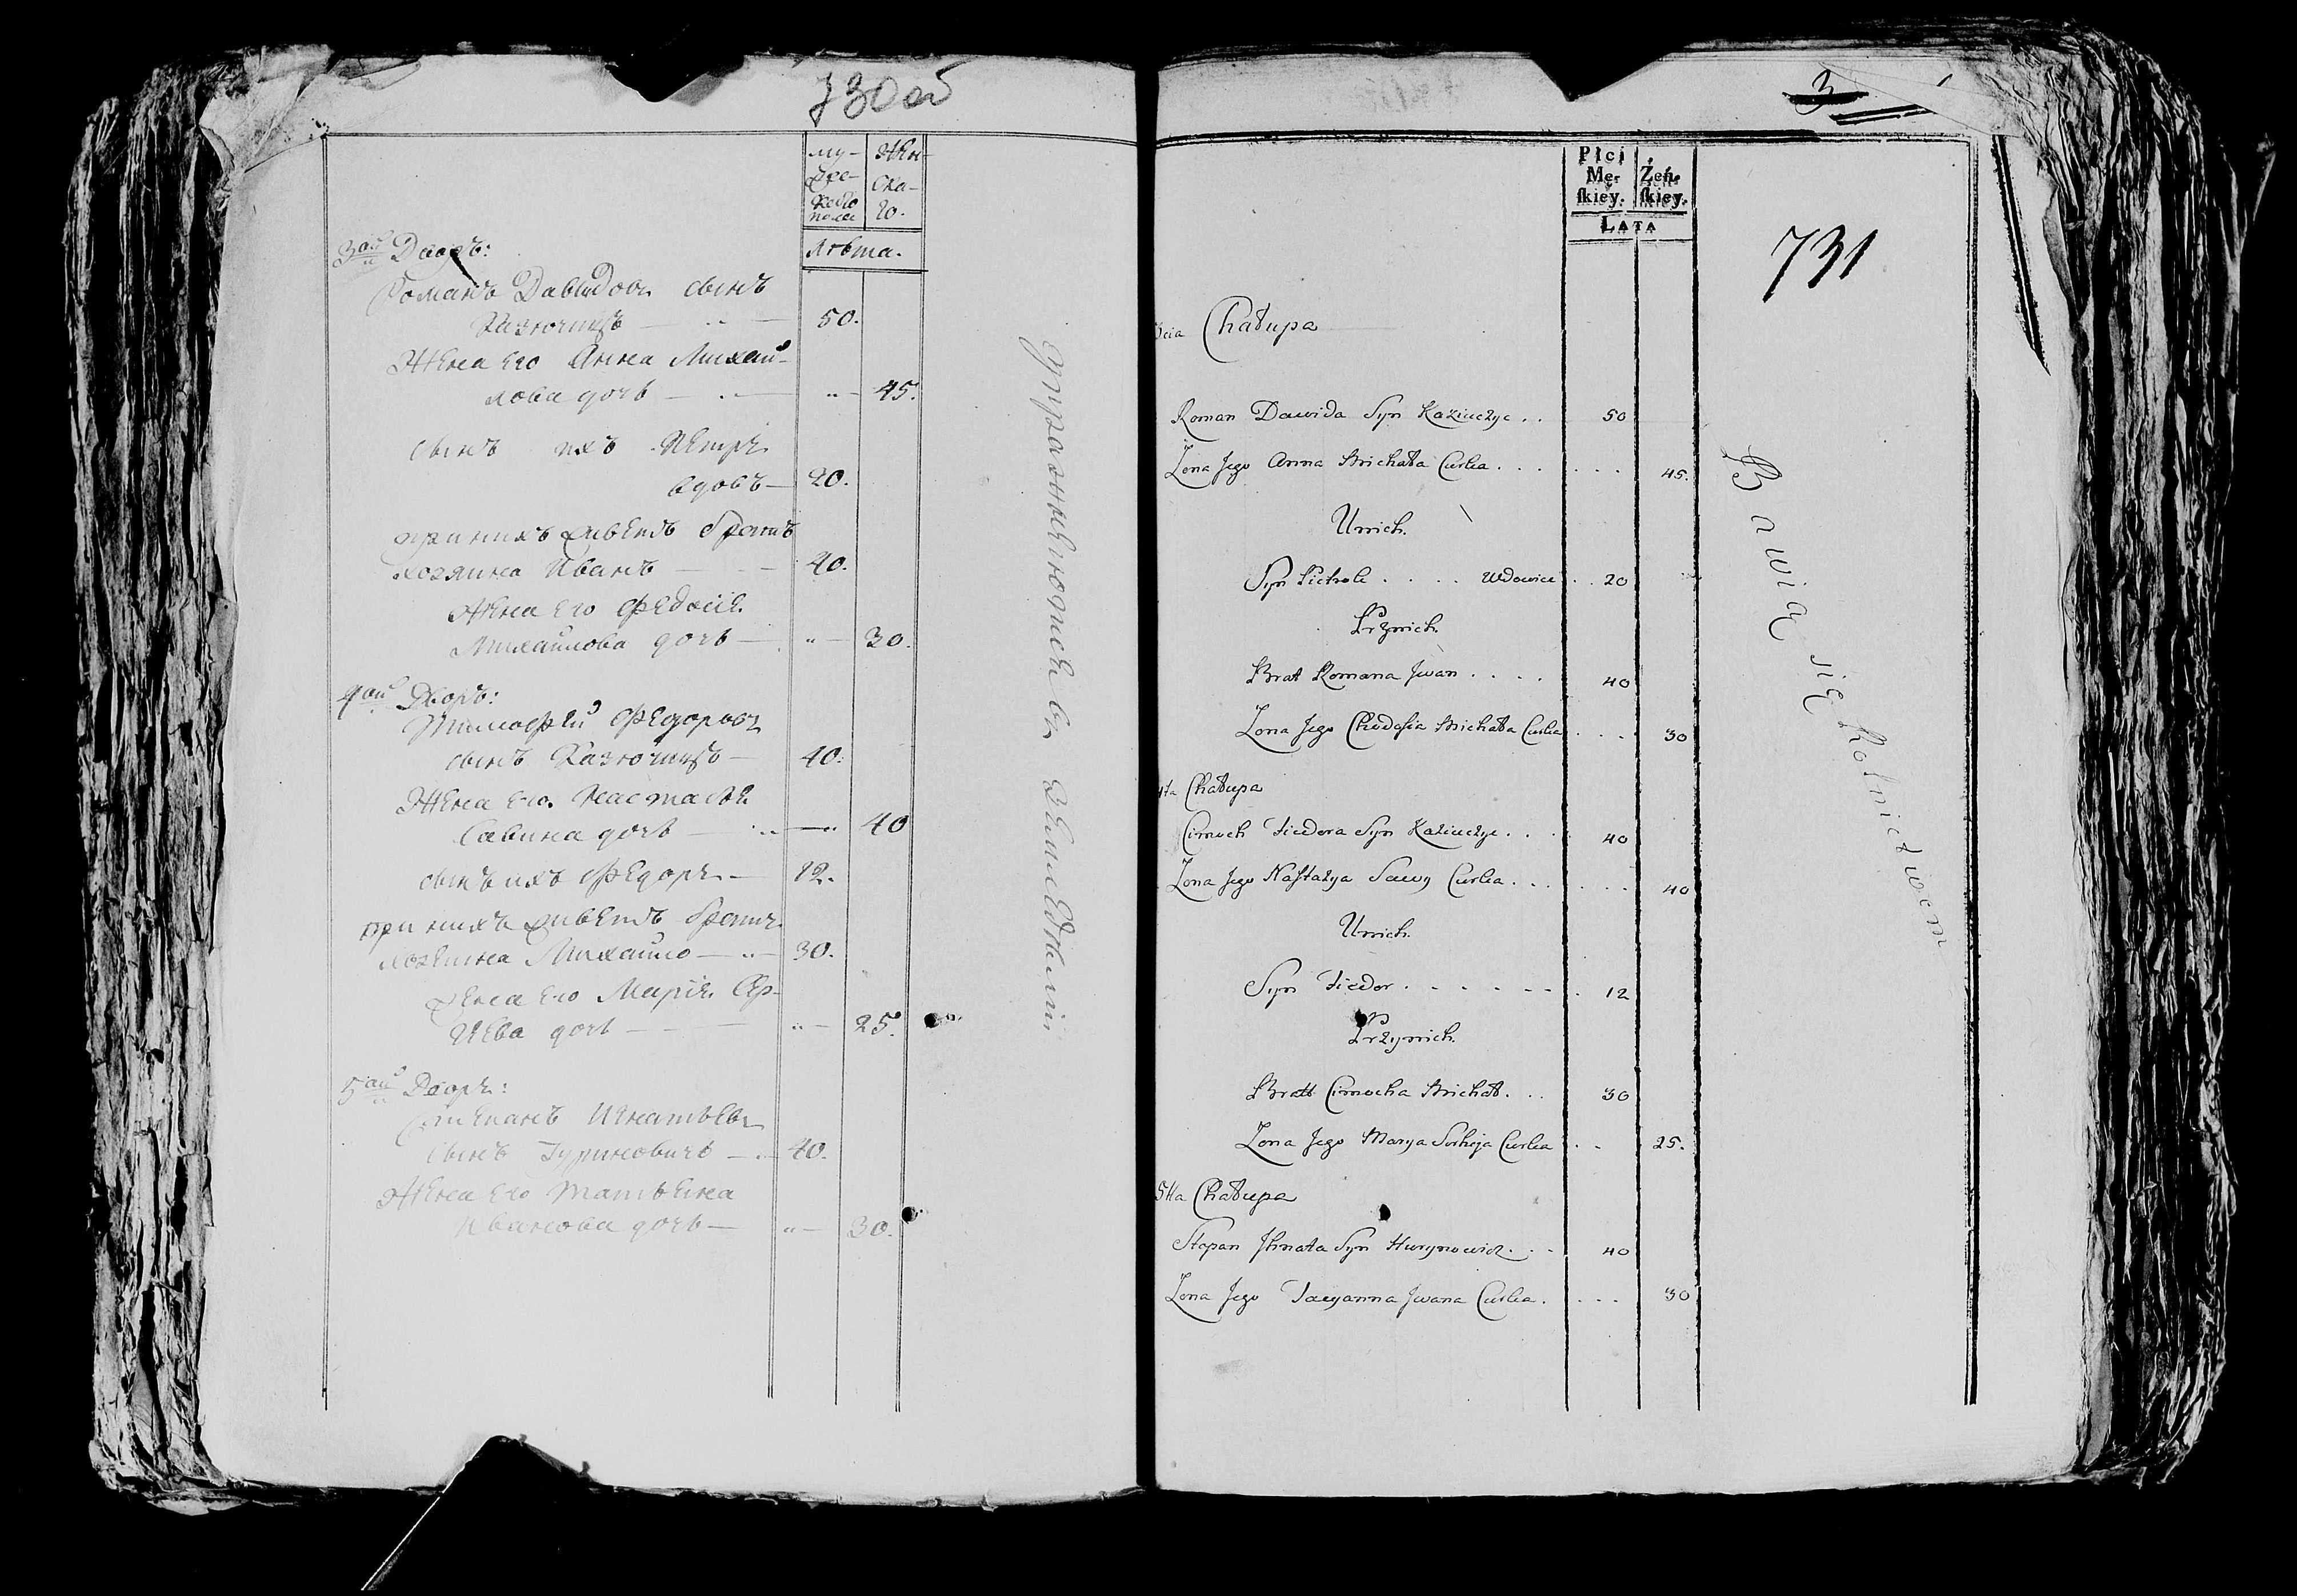 730об
му-
жес-
кого
пола
Жен-
ска-
го.
Лѣта.
3ай Дворъ:
Романъ Давыдовъ сынъ
Казючицъ — 50.
Жена его Анна Михай-
лова дочь — 45.
сынъ ихъ Петръ
вдовъ — 20.
при нихъ живетъ братъ
хозяина Иванъ — 40.
Жена его Федосiя
Михайлова дочь — 30.
4ай Дворъ:
Тимофей Федоровъ
сынъ Казючицъ — 40.
Жена его Настасья
Савина дочь — 40
сынъ ихъ Федоръ — 12.
при нихъ живетъ братъ
хозяина Михайло — 30.
жена его Марiя Сер-
геева дочь — 25.
5ай Дворъ:
Степанъ Игнатьевъ
сынъ Гуриновичъ — 40.
Жена его Татьяна
Иванова дочь — 30.
упражняются въ земледѣлiи
3
731
Płci
Mę-
ſkiey.
Żeń-
ſkiey.
LATA
3cia Chałupa
Roman Dawida Syn Kaziuczyc . . 50
Zona Jego Anna Michała Curka . . . . . . 45.
Unich.
Syn Pietrok . . . . Wdowiec . . 20
Prznich.
Brat Romana Jwan . . . . 40
Zona Jego Chodosia Michała Curka . . . 30
4ta Chałupa
Cimoch Fiedora Syn Kaziuczyc . . . 40
Zona Jego Nastazya Sawy Curka . . . . . . 40
Unich.
Syn Fiedor . . . . . . . . 12
Przynich.
Bratt Cimocha Michał . . . 30
Zona Jego Marya Serheja Curka . . 25.
5tta Chałupa
Stepan Jhnata Syn Hurynowicz . . . 40
Zona Jego Taeyanna Jwana Curka . . . . 30
Bawią się Rolnictwem